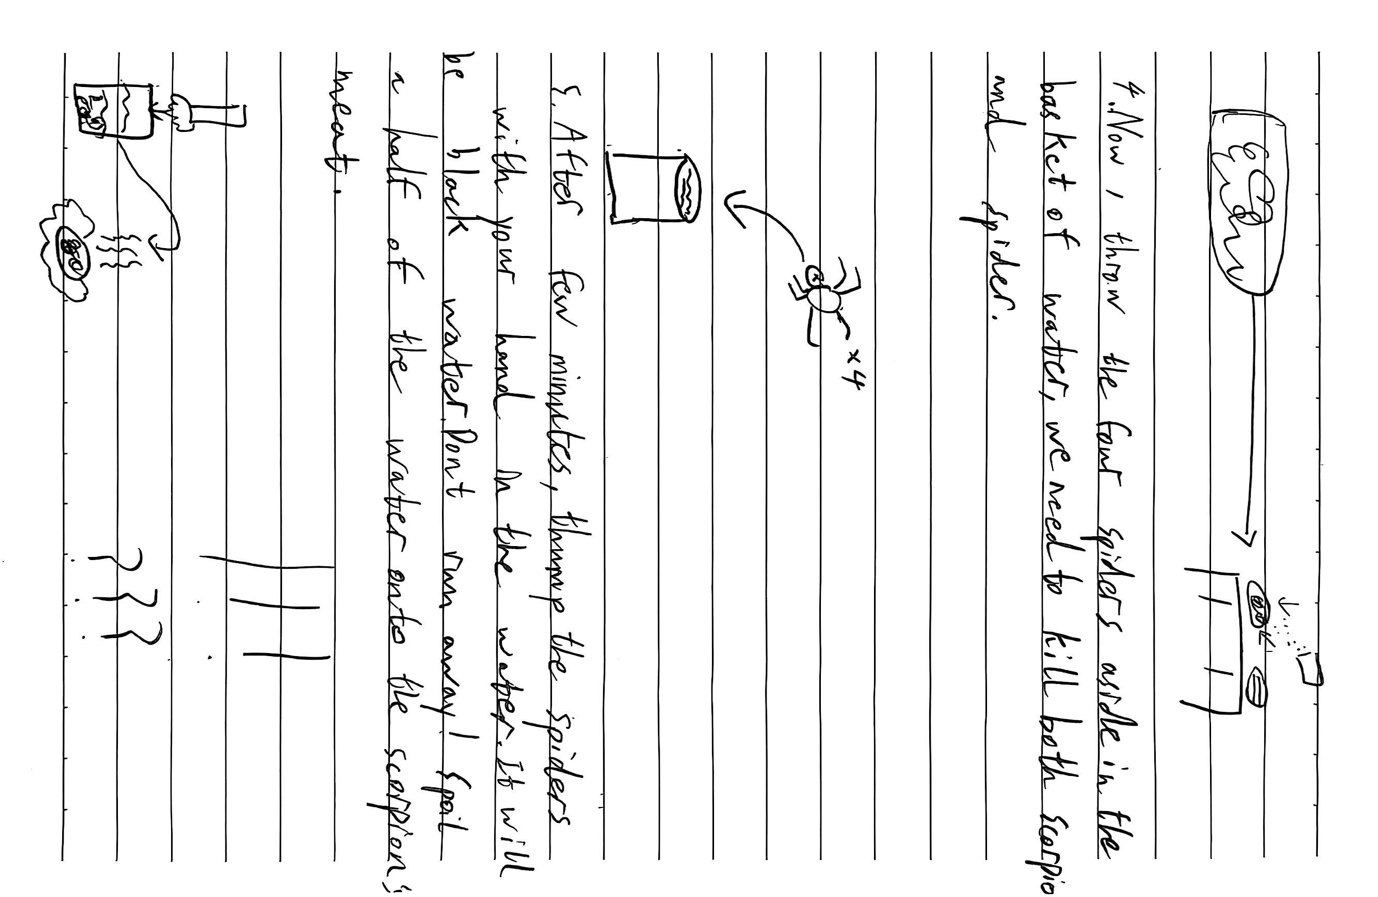 4. Now, throw the four spiders aside in the
basket of water, we need to kill both scorpio
and spider.
x4
5. After few minutes, thump the spiders
with your hand in the water. It will
be black water. Dont run away! Spoil
a half of the water onto the scorpion's
meat.